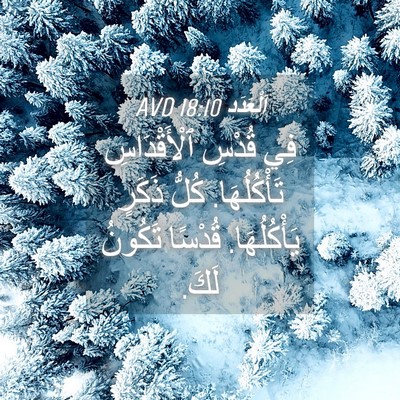 اَلْعَدَد 18:10 AVD
فِي قُدْسِ ٱلْأَقْدَاسِ
تَأْكُلُهَا. كُلُّ ذَكَرٍ
يَأْكُلُهَا. قُدْسًا تَكُونُ
لَكَ.